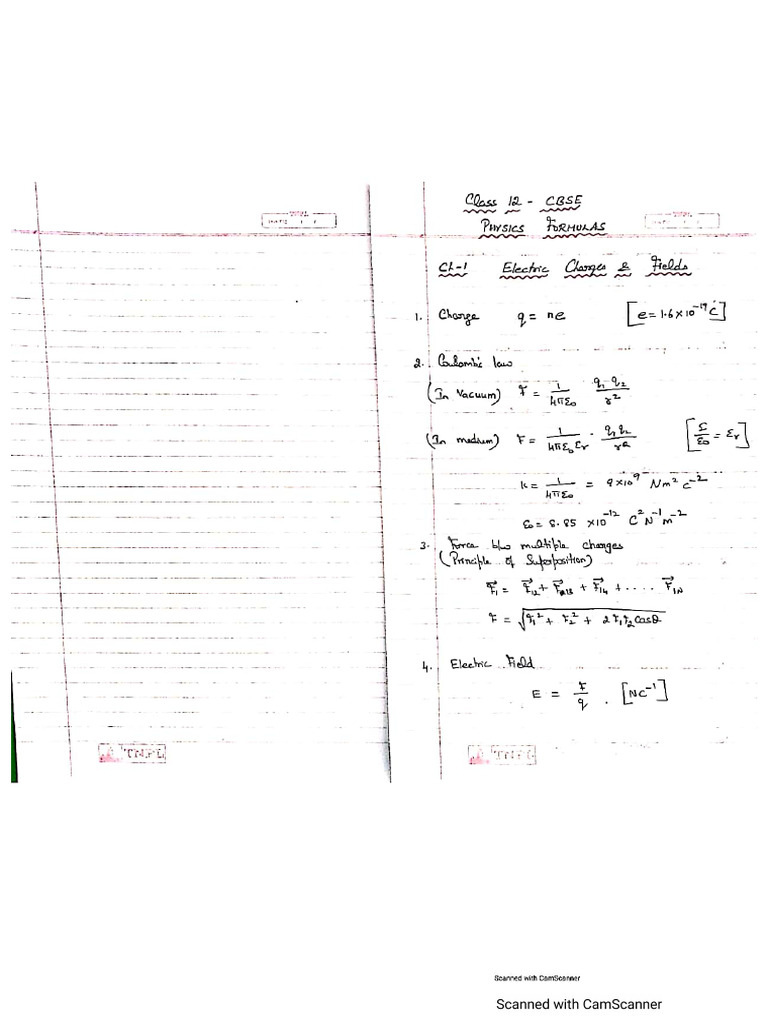 Class 12 - CBSE
PHYSICS FORMULAS
Ch-1 Electric Charges & Fields
1. Charge q = ne [e = 1.6 × 10⁻¹⁹ C]
2. Coulomb's law
(In vacuum) F = 1/4πε₀ · q₁q₂/r²
(In medium) F = 1/4πε₀εᵣ · q₁q₂/r² [ε/ε₀ = εᵣ]
k = 1/4πε₀ = 9×10⁹ Nm²C⁻²
ε₀ = 8.85 ×10⁻¹² C²N⁻¹m⁻²
3. Force b/w multiple charges
(Principle of Superposition)
F⃗₁ = F⃗₁₂ + F⃗₁₃ + F⃗₁₄ + .... F⃗₁N
F = √(F₁² + F₂² + 2F₁F₂ Cosθ)
4. Electric Field
E = F/q . [NC⁻¹]
TNPL
TNPL
Scanned with CamScanner
Scanned with CamScanner